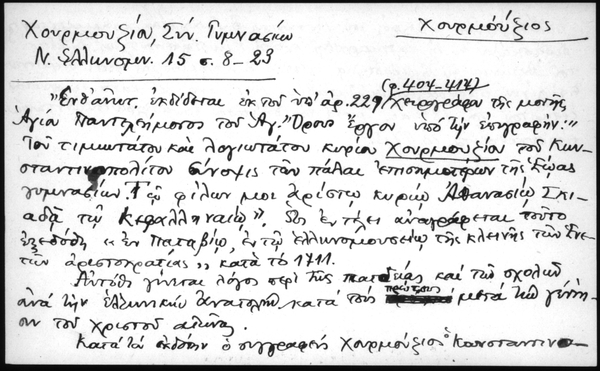 Χουρμουζίου, Συν. Γυμνασίων
Χουρμούζιος
Ν. Ελληνομν. 15 σ. 8-23
(φ. 404-414)
Ἐνθ' ἀνωτ. ἐκδίδεται ἐκ τοῦ ὑπ' ἀρ. 229 χειρογράφου τῆς μονῆς
Ἁγίου Παντελεήμονος τοῦ Ἁγ. Ὄρους ἔργον ὑπὸ τὴν ἐπιγραφήν: "
Τοῦ τιμιωτάτου καὶ λογιωτάτου κυρίου Χουρμουζίου τοῦ Κων-
σταντινοπολίτου σύνοψις τῶν πάλαι ἐπισημοτέρων τῆς Ἑώας
γυμνασίων. Τῷ φίλων μοι ἀρίστῳ κυρίῳ Ἀθανασίῳ Σκι-
αδᾷ τῷ Κεφαλληναίῳ". Ὡς ἐν τέλει ἀναγράφεται τοῦτο
ἐξεδόθη « ἐν Παταβίῳ, ἐν τῷ ἑλληνομουσείῳ τῆς κλεινῆς τῶν Ἐνε-
τῶν ἀριστοκρατίας » κατὰ τὸ 1711.
Αὐτόθι γίνεται λόγος περὶ τῆς παιδείας καὶ τῶν σχολῶν
ἀνὰ τὴν ἑλληνικὴν ἀνατολὴν κατὰ τοὺς πρώτους μετὰ τὴν γέννη-
σιν τοῦ Χριστοῦ αἰῶνας.
Κατὰ τὸν ἐκδότην ὁ συγγραφεὺς Χουρμούζιος ὁ Κωνσταντινο-